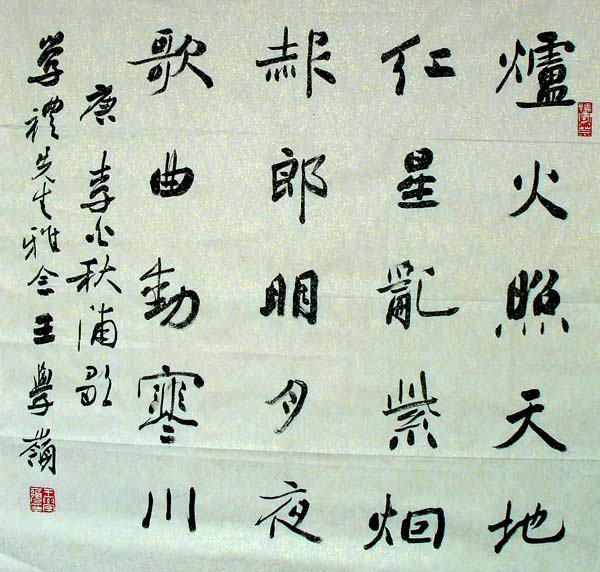 爐火照天地
紅星亂紫烟
赧郎明月夜
歌曲動寒川
唐李白秋浦歌
學禮先生雅念王學嶺